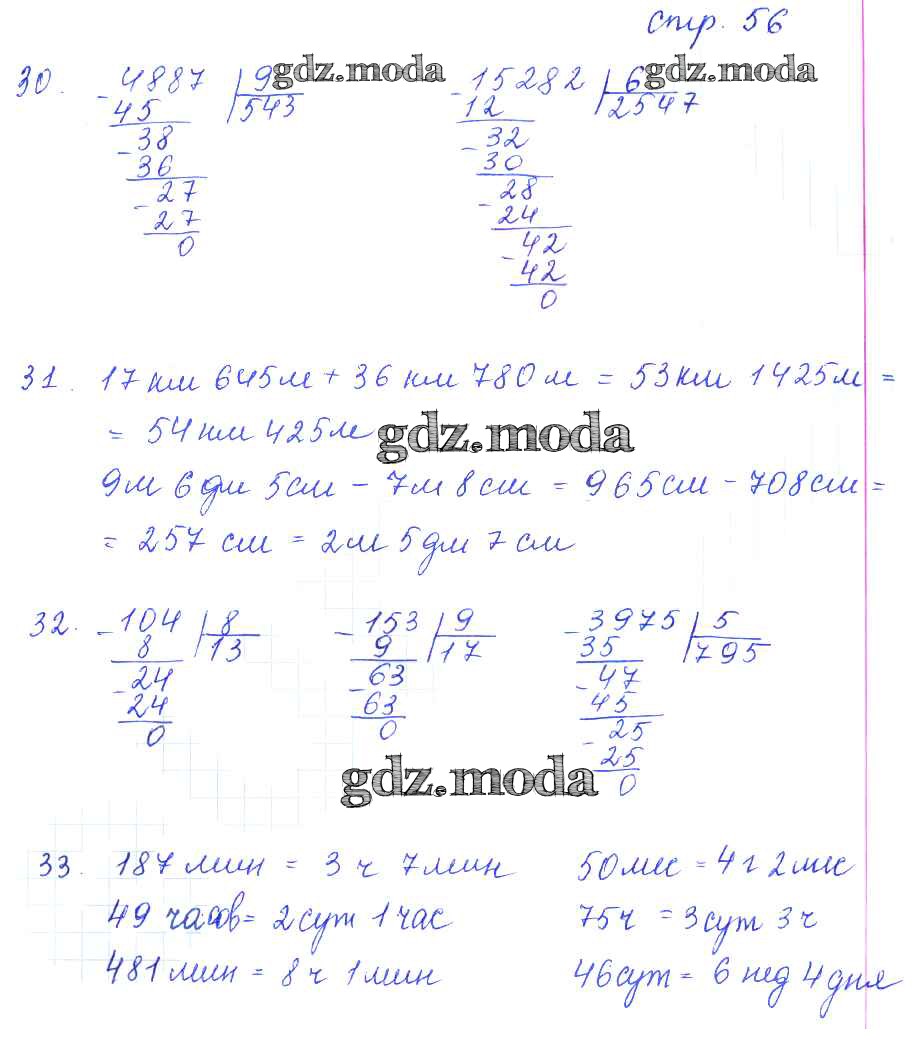 стр. 56
30. -4887 | 9 gdz.moda -15282 | 6 gdz.moda
45 543 12 2547
-38 -32
36 30
-27 -28
27 24
0 -42
42
0
31. 17 км 645 м + 36 км 780 м = 53 км 1425 м =
= 54 км 425 м gdz.moda
9 м 6 дм 5 см - 7 м 8 см = 965 см - 708 см =
= 257 см = 2 м 5 дм 7 см
32. -104 | 8 -153 | 9 -3975 | 5
8 13 9 17 35 795
-24 -63 -47
24 63 45
0 0 -25
25
0
gdz.moda
33. 187 мин = 3 ч 7 мин 50 мес = 4 г 2 мес
49 часов = 2 сут 1 час 75 ч = 3 сут 3 ч
481 мин = 8 ч 1 мин 46 сут = 6 нед 4 дня